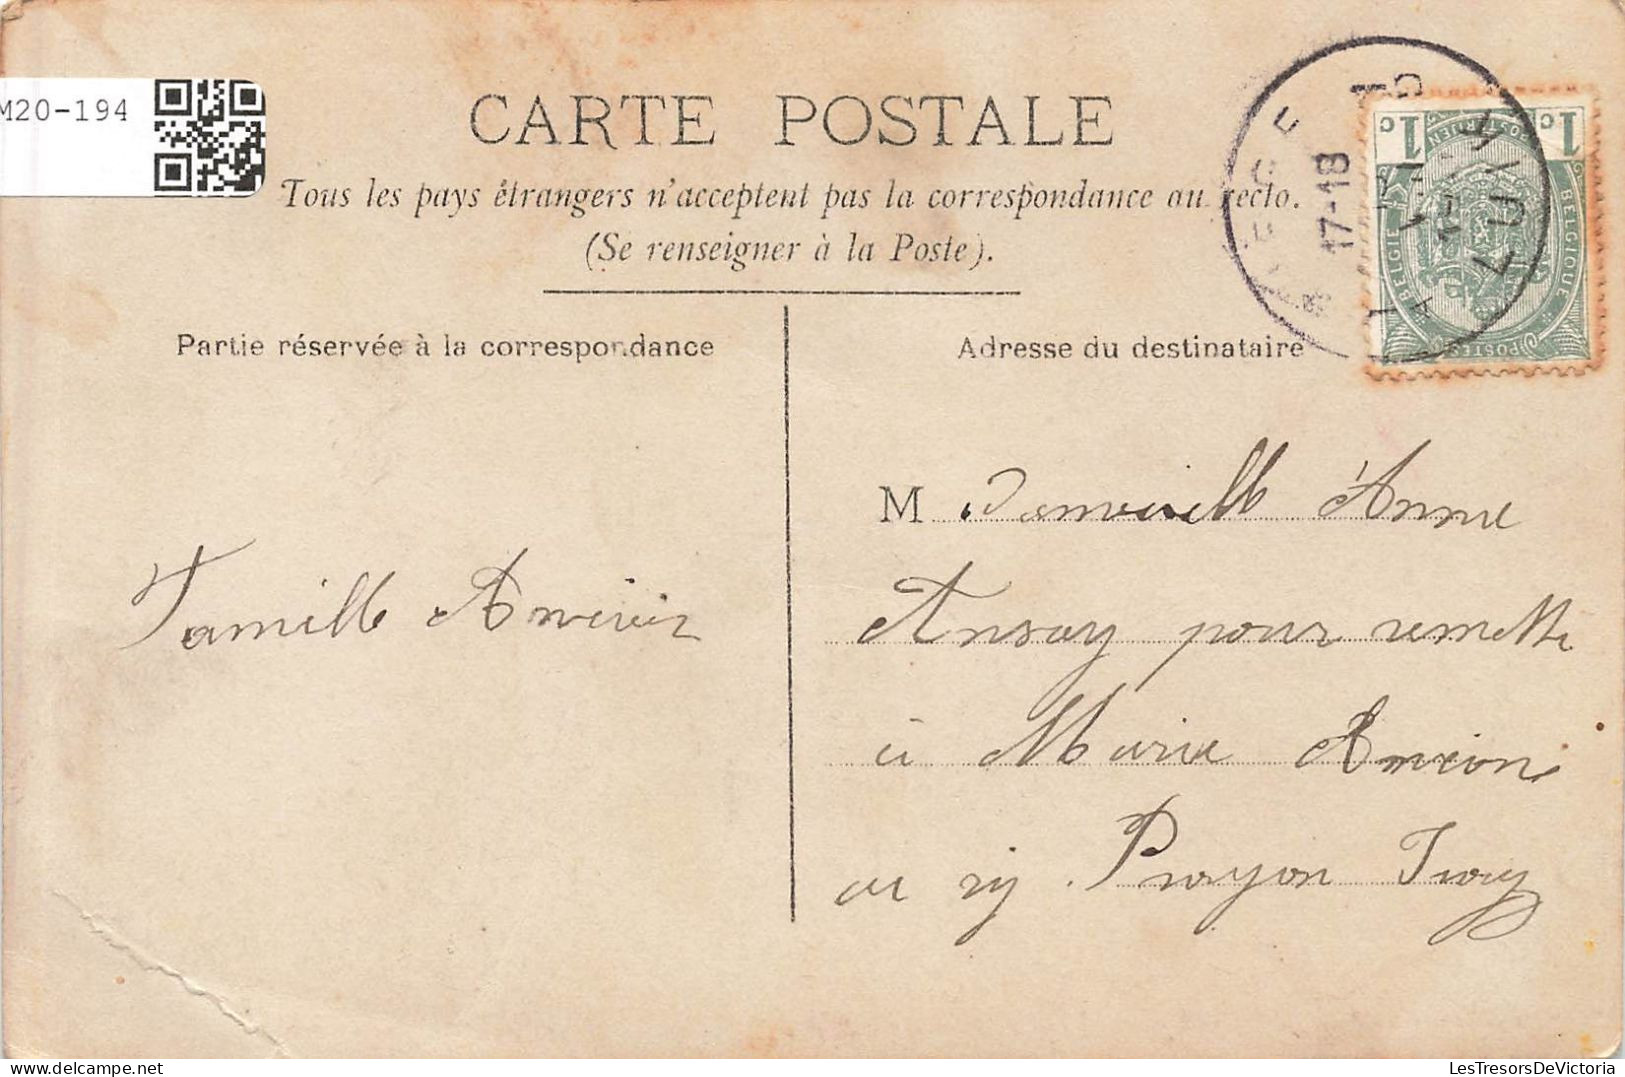 M20-194
CARTE POSTALE
Tous les pays étrangers n'acceptent pas la correspondance au recto.
(Se renseigner à la Poste).
Partie réservée à la correspondance
Adresse du destinataire
17-18
1c 1c
POSTERIJEN
BELGIE BELGIQUE
POSTES POSTES
Famille
M Anne
Ansay pour remette
à Marie
Prayon
LesTresorsDeVictoria